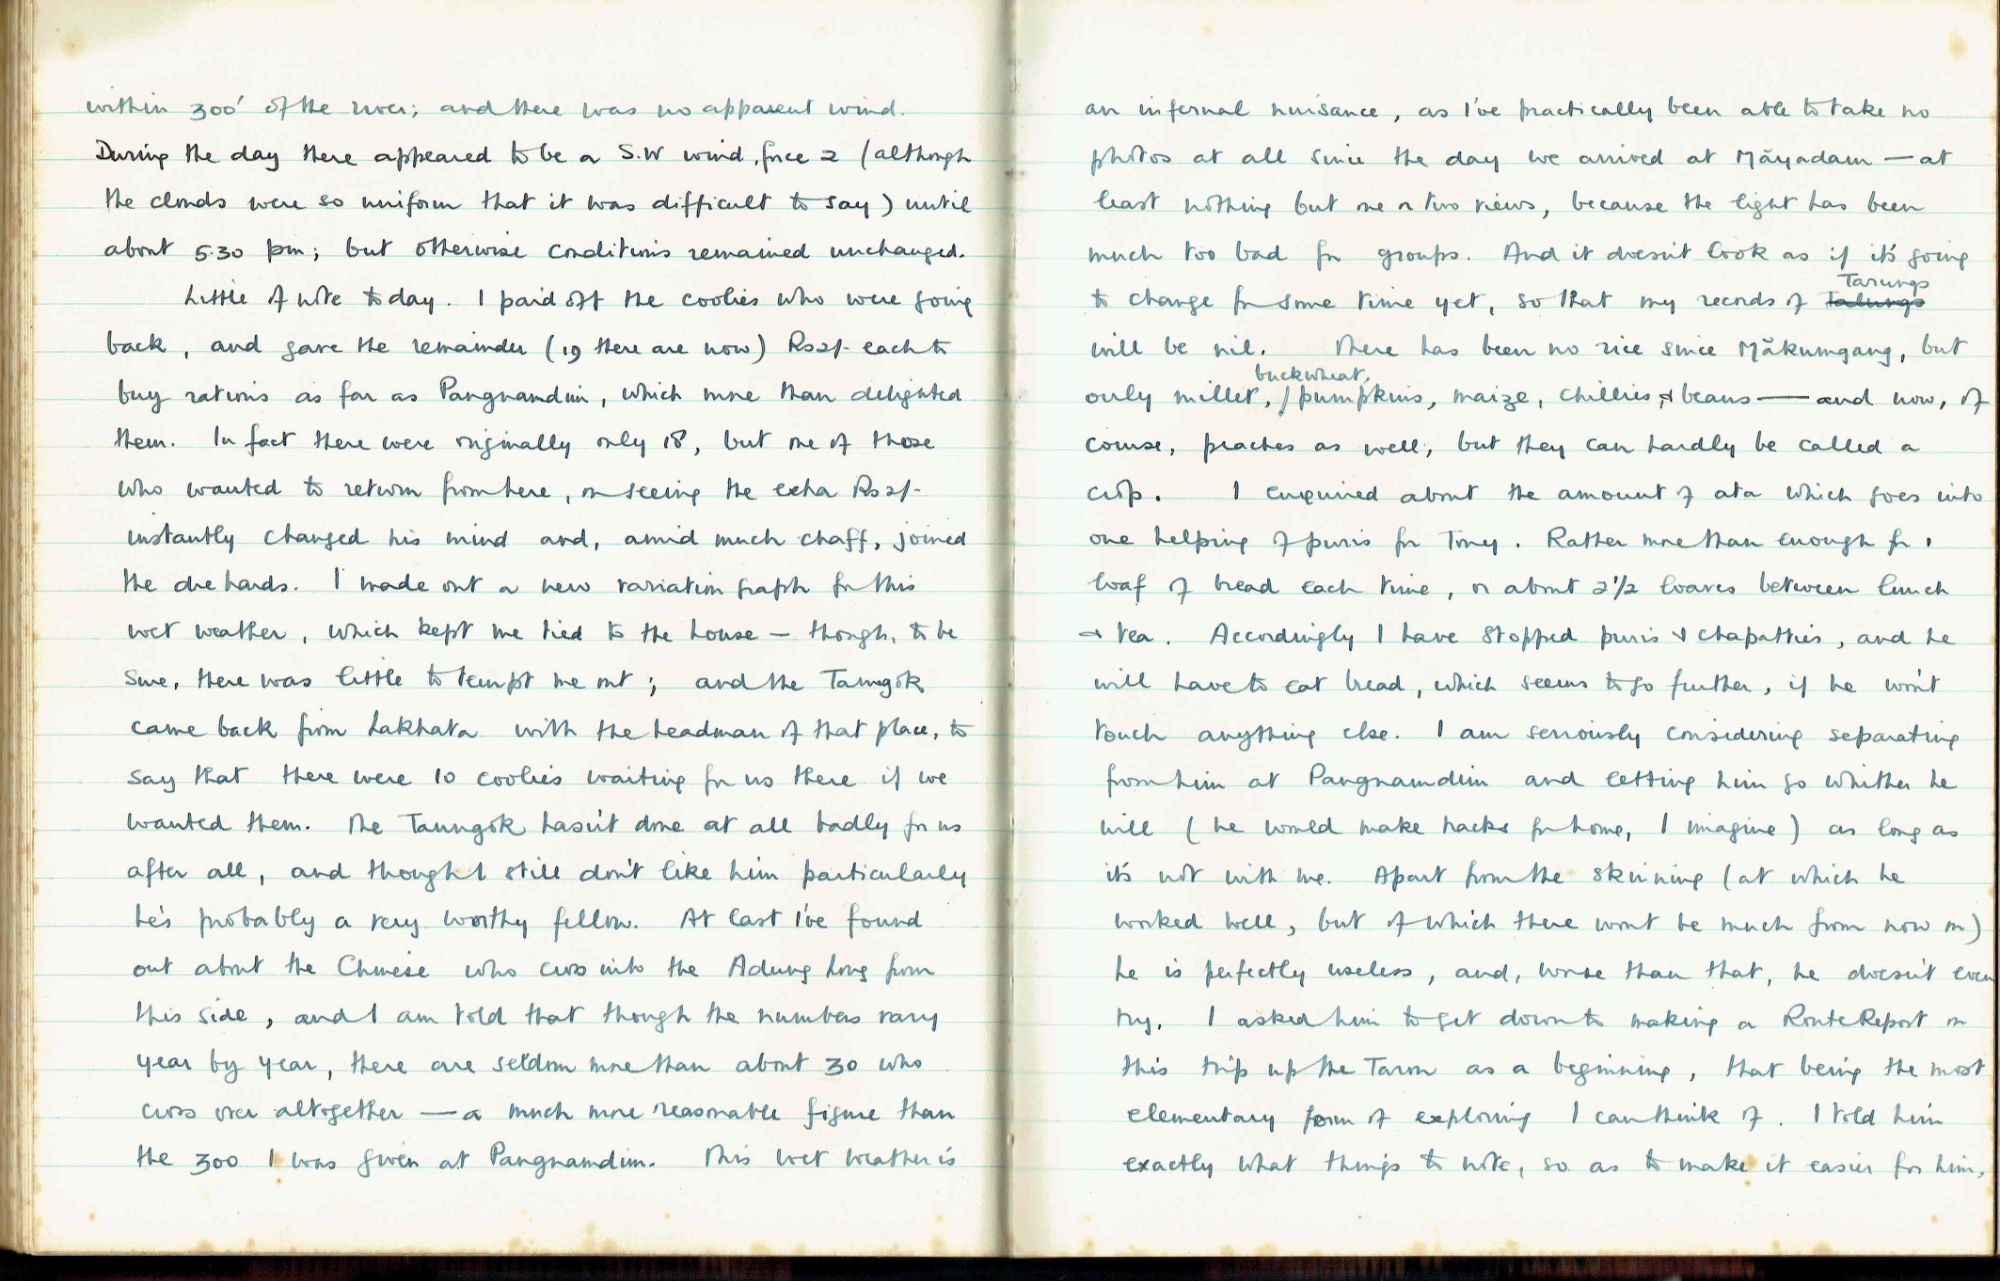 within 300' of the river; and there was no apparent wind.
During the day there appeared to be a S.W wind, force 2 (although
the clouds were so uniform that it was difficult to say) until
about 5.30 pm; but otherwise conditions remained unchanged.
Little of note today. I paid off the coolies who were going
back, and gave the remainder (19 there are now) Rs2/- each to
buy rations as far as Pangnamdim, which more than delighted
them. In fact there were originally only 18, but one of those
who wanted to return from here, on seeing the extra Rs2/-
instantly changed his mind and, amid much chaff, joined
the die hards. I made out a new variation graph for this
wet weather, which kept me tied to the house — though, to be
sure, there was little to tempt me out; and the Taungok
came back from Lakhata with the headman of that place, to
say that there were 10 coolies waiting for us there if we
wanted them. The Taungok hasn't done at all badly for us
after all, and though I still don't like him particularly
he's probably a very worthy fellow. At last I've found
out about the Chinese who cross into the Adung Long from
this side, and I am told that though the numbers vary
year by year, there are seldom more than about 30 who
cross over altogether — a much more reasonable figure than
the 300 I was given at Pangnamdim. This wet weather is
an infernal nuisance, as I've practically been able to take no
photos at all since the day we arrived at Māyadam — at
least nothing but one or two views, because the light has been
much too bad for groups. And it doesn't look as if it's going
to change for some time yet, so that my records of Talungs Tarungs
will be nil. There has been no rice since Mākumgang, but
only millet, buckwheat, pumpkins, maize, chillies, & beans — and now, of
course, peaches as well, but they can hardly be called a
crop. I enquired about the amount of ata which goes into
one helping of puris for Tony. Rather more than enough for 1
loaf of bread each time, or about 2½ loaves between lunch
& tea. Accordingly I have stopped puris & chapatties, and he
will have to eat bread, which seems to go further, if he won't
touch anything else. I am seriously considering separating
from him at Pangnamdim and letting him go whither he
will (he would make tracks for home, I imagine) as long as
it's not with me. Apart from the skinning (at which he
worked well, but of which there wont be much from now on)
he is perfectly useless, and, worse than that, he doesn't even
try. I asked him to get down to making a Route Report on
this trip up the Taron as a beginning, that being the most
elementary form of exploring I can think of. I told him
exactly what things to note, so as to make it easier for him,